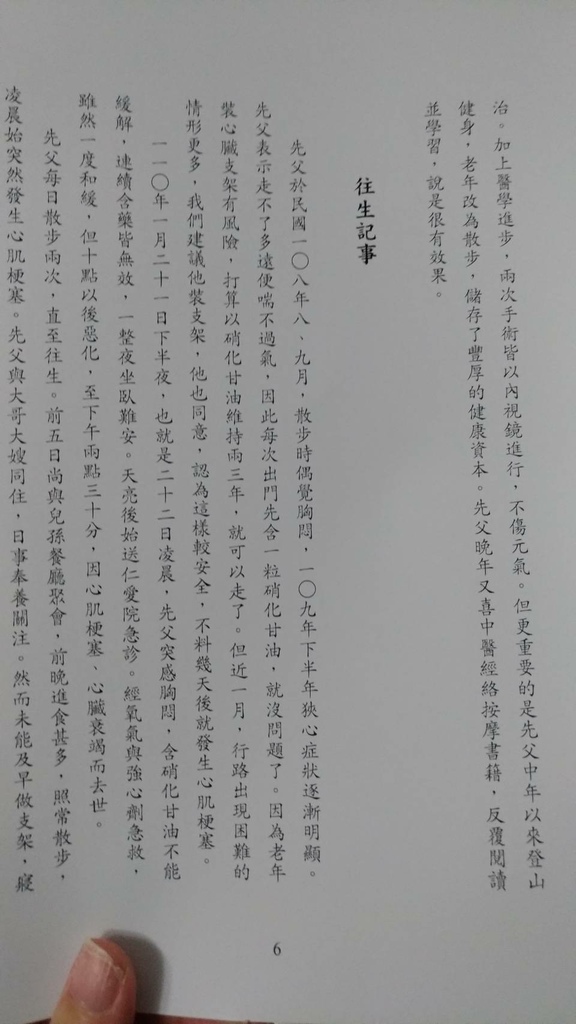 治。加上醫學進步，兩次手術皆以內視鏡進行，不傷元氣。但更重要的是先父中年以來登山
健身，老年改為散步，儲存了豐厚的健康資本。先父晚年又喜中醫經絡按摩書籍，反覆閱讀
並學習，說是很有效果。
往生記事
先父於民國一〇八年八、九月，散步時偶覺胸悶，一〇九年下半年狹心症狀逐漸明顯。
先父表示走不了多遠便喘不過氣，因此每次出門先含一粒硝化甘油，就沒問題了。因為老年
裝心臟支架有風險，打算以硝化甘油維持兩三年，就可以走了。但近一月，行路出現困難的
情形更多，我們建議他裝支架，他也同意，認為這樣較安全，不料幾天後就發生心肌梗塞。
一一〇年一月二十一日下半夜，也就是二十二日凌晨，先父突感胸悶，含硝化甘油不能
緩解，連續含藥皆無效，一整夜坐臥難安。天亮後始送仁愛院急診。經氧氣與強心劑急救，
雖然一度和緩，但十點以後惡化，至下午兩點三十分，因心肌梗塞、心臟衰竭而去世。
先父每日散步兩次，直至往生。前五日尚與兒孫餐廳聚會，前晚進食甚多，照常散步，
凌晨始突然發生心肌梗塞。先父與大哥大嫂同住，日事奉養關注。然而未能及早做支架，寢
6